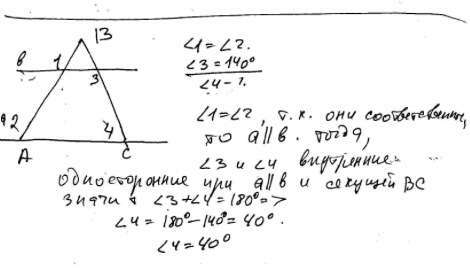 B
в 1 3
2 4
A C
∠1 = ∠2.
∠3 = 140°
∠4 - ?
∠1 = ∠2, т.к. они соответственные,
то a∥в. тогда,
∠3 и ∠4 внутренние
односторонние при a∥в и секущей BC
значит ∠3 + ∠4 = 180° =>
∠4 = 180° - 140° = 40°.
∠4 = 40°